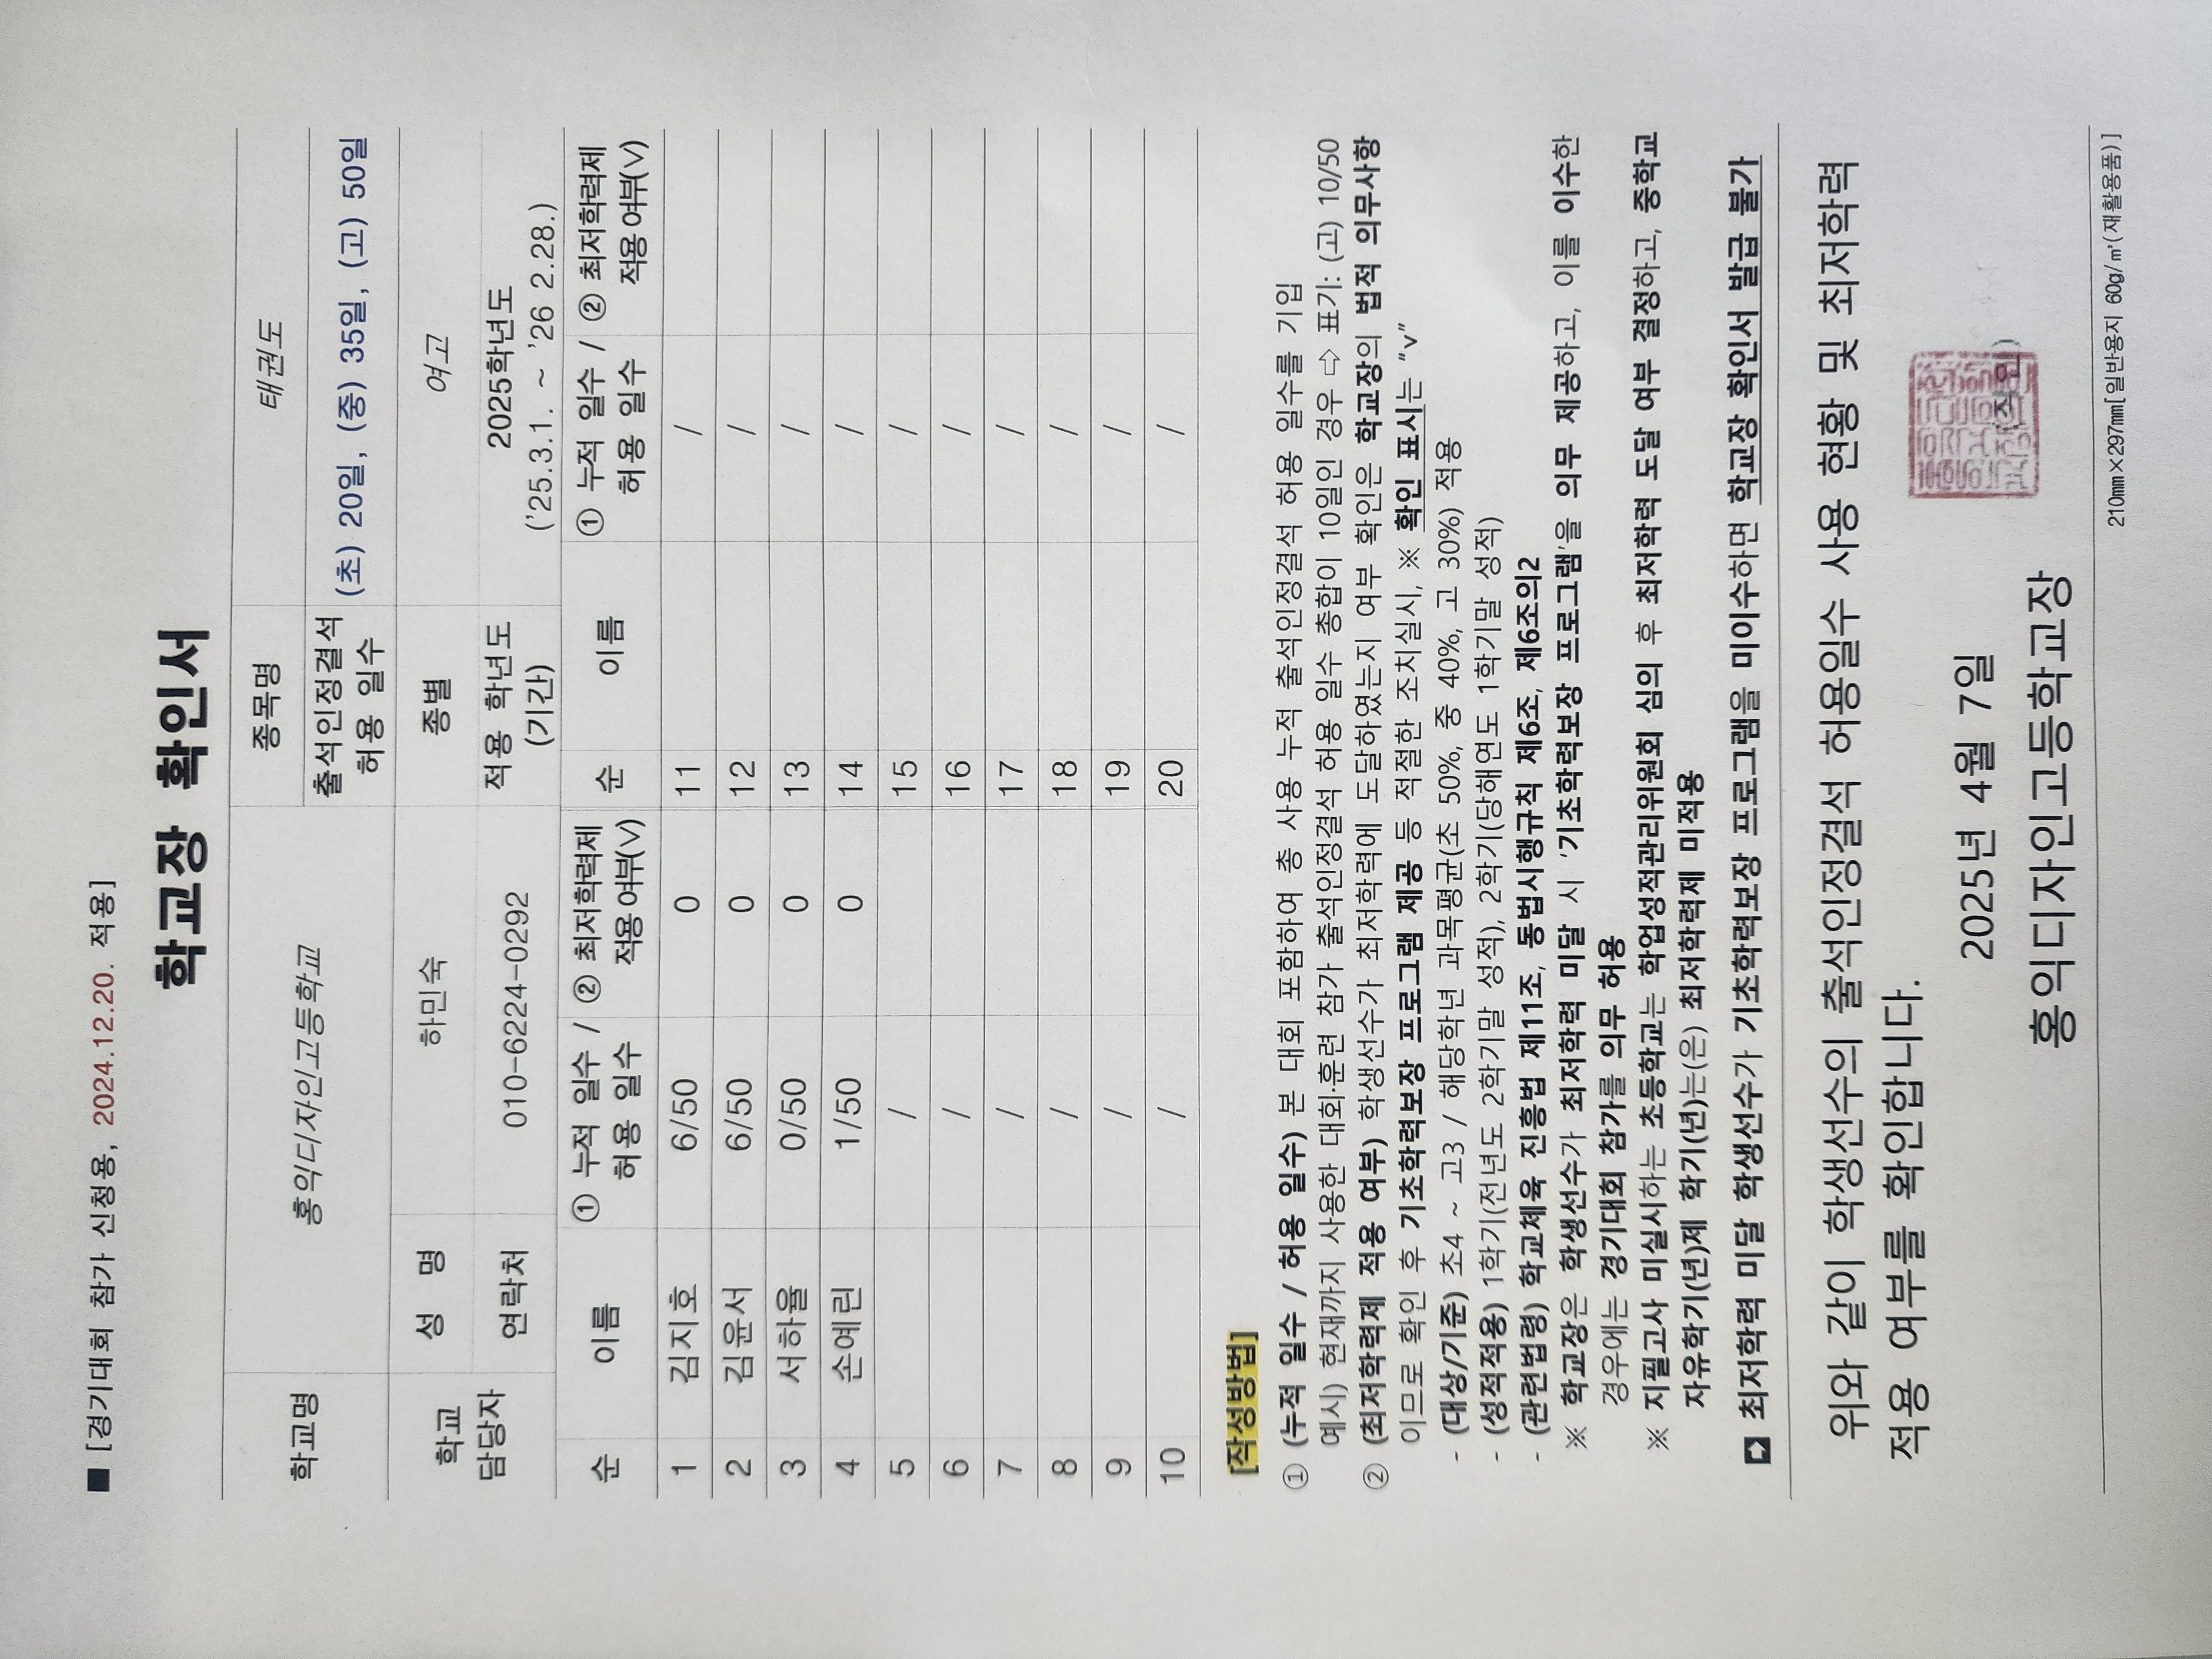 ■ [경기대회 참가 신청용, 2024.12.20. 적용]
학교장 확인서
학교명 홍익디자인고등학교 종목명 태권도
출석인정결석 허용 일수 (초) 20일, (중) 35일, (고) 50일
학교 담당자 성 명 하민숙 종별 여고
연락처 010-6224-0292 적용 학년도 (기간) 2025학년도 ('25.3.1. ~ '26 2.28.)
순 이름 ① 누적 일수 / 허용 일수 ② 최저학력제 적용여부(V) 순 이름 ① 누적 일수 / 허용 일수 ② 최저학력제 적용여부(V)
1 김지호 6/50 0 11 /
2 김윤서 6/50 0 12 /
3 서하율 0/50 0 13 /
4 손예린 1/50 0 14 /
5 / 15 /
6 / 16 /
7 / 17 /
8 / 18 /
9 / 19 /
10 / 20 /
[작성방법]
① (누적 일수 / 허용 일수) 본 대회 포함하여 총 사용 누적 출석인정결석 허용 일수를 기입
예시) 현재까지 사용한 대회·훈련 참가 출석인정결석 허용 일수 총합이 10일인 경우 ⇨ 표기: (고) 10/50
② (최저학력제 적용 여부) 학생선수가 최저학력에 도달하였는지 여부 확인은 학교장의 법적 의무사항
이므로 확인 후 기초학력보장 프로그램 제공 등 적절한 조치실시, ※ 확인 표시는 "v"
- (대상/기준) 초4 ~ 고3 / 해당학년 과목평균(초 50%, 중 40%, 고 30%) 적용
- (성적적용) 1학기(전년도 2학기말 성적), 2학기(당해연도 1학기말 성적)
- (관련법령) 학교체육 진흥법 제11조, 동법시행규칙 제6조, 제6조의2
※ 학교장은 학생선수가 최저학력 미달 시 '기초학력보장 프로그램'을 의무 제공하고, 이를 이수한
경우에는 경기대회 참가를 의무 허용
※ 지필고사 미실시하는 초등학교는 학업성적관리위원회 심의 후 최저학력 도달 여부 결정하고, 중학교
자유학기(년)제 학기(년)는(은) 최저학력제 미적용
최저학력 미달 학생선수가 기초학력보장 프로그램을 미이수하면 학교장 확인서 발급 불가
위와 같이 학생선수의 출석인정결석 허용일수 사용 현황 및 최저학력
적용 여부를 확인합니다.
2025년 4월 7일
홍익디자인고등학교장 (직인)
210㎜×297㎜[일반용지 60g/㎡(재활용품)]